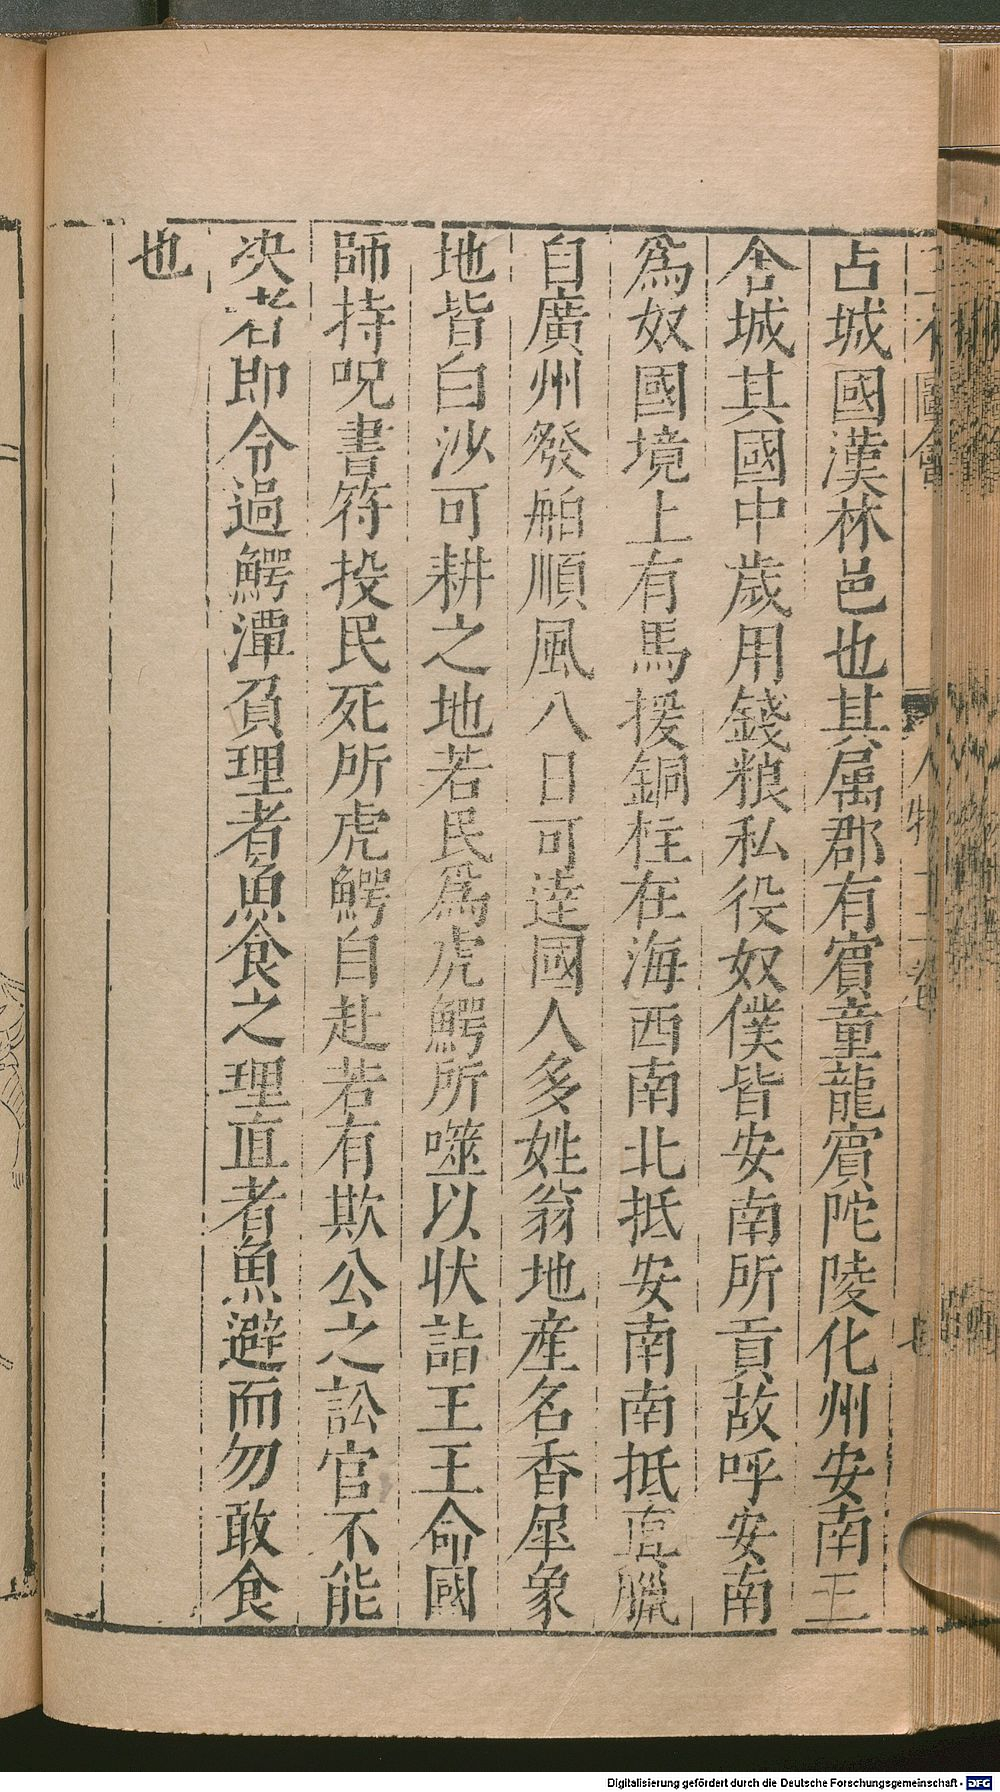 占城國漢林邑也其属郡有賔童龍賔陀陵化州安南王
舎城其國中歲用錢粮私役奴僕皆安南所貢故呼安南
為奴國境上有馬援銅柱在海西南北抵安南南抵真臘
自廣州發舶順風八日可達國人多姓翁地産名香犀象
地皆白沙可耕之地若民為虎鰐所噬以状詣王王命國
師持呪書符投民死所虎鰐自赴若有欺公之訟官不能
决者即令過鰐潭負理者魚食之理直者魚避而勿敢食
也
人物十二卷
Digitalisierung gefördert durch die Deutsche Forschungsgemeinschaft - DFG